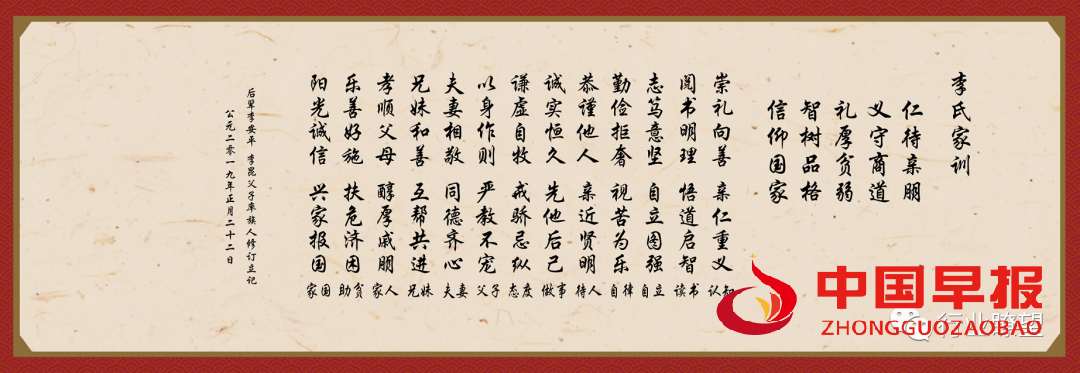 李氏家训
仁待亲朋
义守商道
礼厚贫弱
智树品格
信仰国家
崇礼向善 亲仁重义 认知
阅书明理 悟道启智 读书
志笃意坚 自立图强 自立
勤俭拒奢 视苦为乐 自律
恭谨他人 亲近贤明 待人
诚实恒久 先他后己 做事
谦虚自牧 戒骄忌纵 态度
以身作则 严教不宠 父子
夫妻相敬 同德齐心 夫妻
兄妹和善 互帮共进 兄妹
孝顺父母 醇厚戚朋 家人
乐善好施 扶危济困 助贫
阳光诚信 兴家报国 家国
后辈李安平 李昆父子率族人修订立记
公元二零一九年正月二十二日
中国早报
ZHONGGUOZAOBAO
行业瞭望